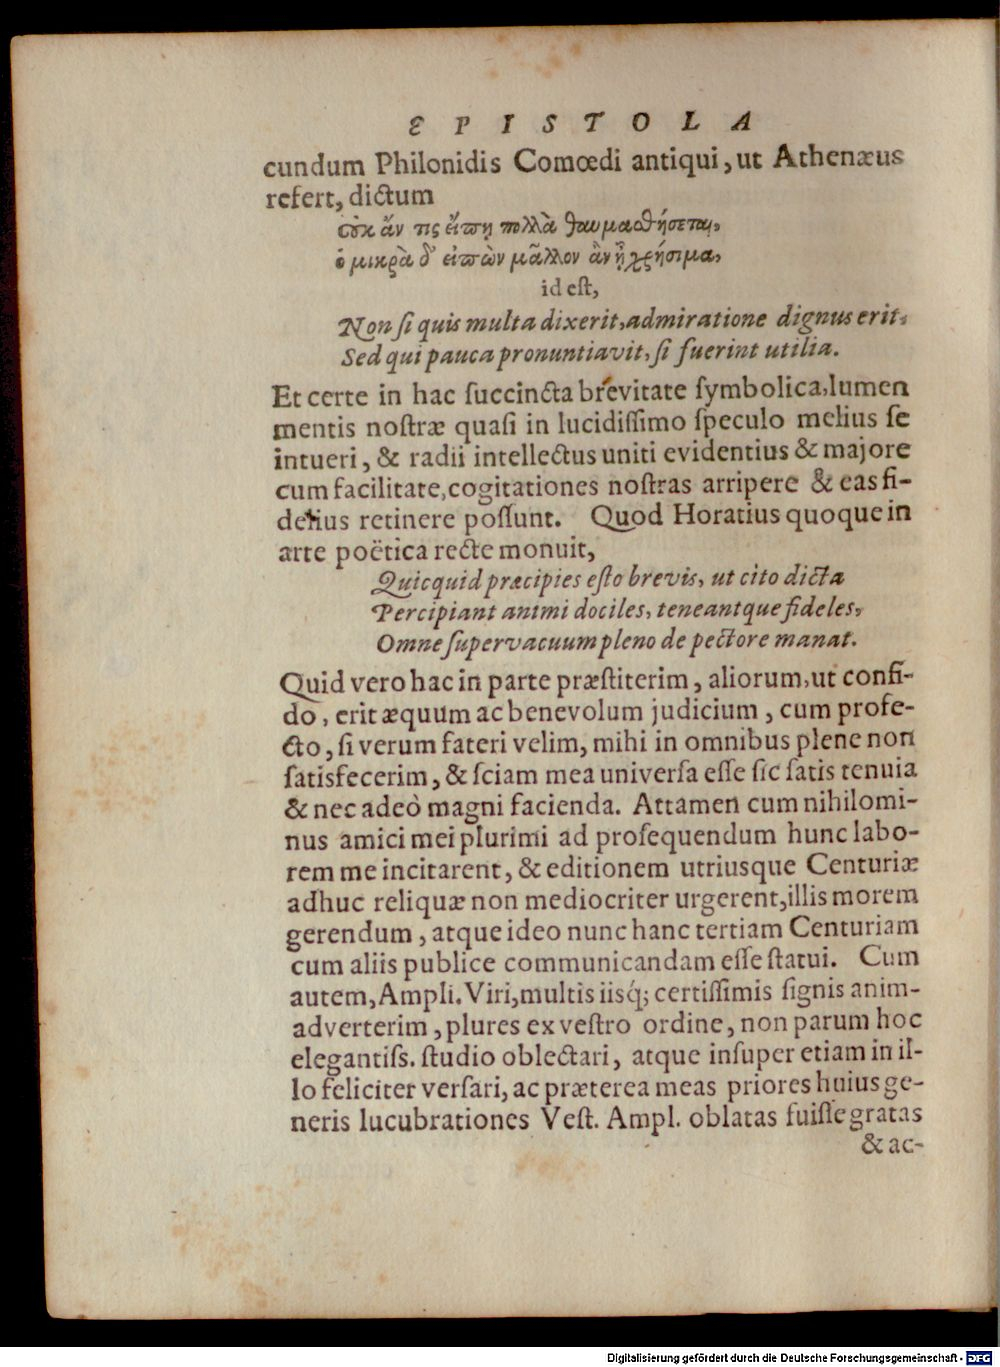 EPISTOLA
cundum Philonidis Comœdi antiqui, ut Athenæus
refert, dictum
οὐκ ἄν τις εἴπῃ πολλὰ θαυμασθήσεται,
ὁ μικρὰ δ' εἰπὼν μᾶλλον ἂν ᾖ χρήσιμα,
id est,
Non ſi quis multa dixerit, admiratione dignus erit,
Sed qui pauca pronuntiavit, ſi fuerint utilia.
Et certe in hac ſuccincta brevitate ſymbolica, lumen
mentis noſtræ quaſi in lucidiſſimo ſpeculo melius ſe
intueri, & radii intellectus uniti evidentius & majore
cum facilitate, cogitationes noſtras arripere & eas fi-
delius retinere poſſunt. Quod Horatius quoque in
arte poëtica recte monuit,
Quicquid præcipies eſto brevis, ut cito dicta
Percipiant animi dociles, teneantque fideles,
Omne ſupervacuum pleno de pectore manat.
Quid vero hac in parte præſtiterim, aliorum, ut confi-
do, erit æquum ac benevolum judicium, cum profe-
cto, ſi verum fateri velim, mihi in omnibus plene non
ſatisfecerim, & ſciam mea univerſa eſſe ſic ſatis tenuia
& nec adeò magni facienda. Attamen cum nihilomi-
nus amici mei plurimi ad proſequendum hunc labo-
rem me incitarent, & editionem utriusque Centuriæ
adhuc reliquæ non mediocriter urgerent, illis morem
gerendum, atque ideo nunc hanc tertiam Centuriam
cum aliis publice communicandam eſſe ſtatui. Cum
autem, Ampli. Viri, multis iisq́; certiſſimis ſignis anim-
adverterim, plures ex veſtro ordine, non parum hoc
elegantiſs. ſtudio oblectari, atque inſuper etiam in il-
lo feliciter verſari, ac præterea meas priores huius ge-
neris lucubrationes Veſt. Ampl. oblatas fuiſſe gratas
& ac-
Digitalisierung gefördert durch die Deutsche Forschungsgemeinschaft - DFG